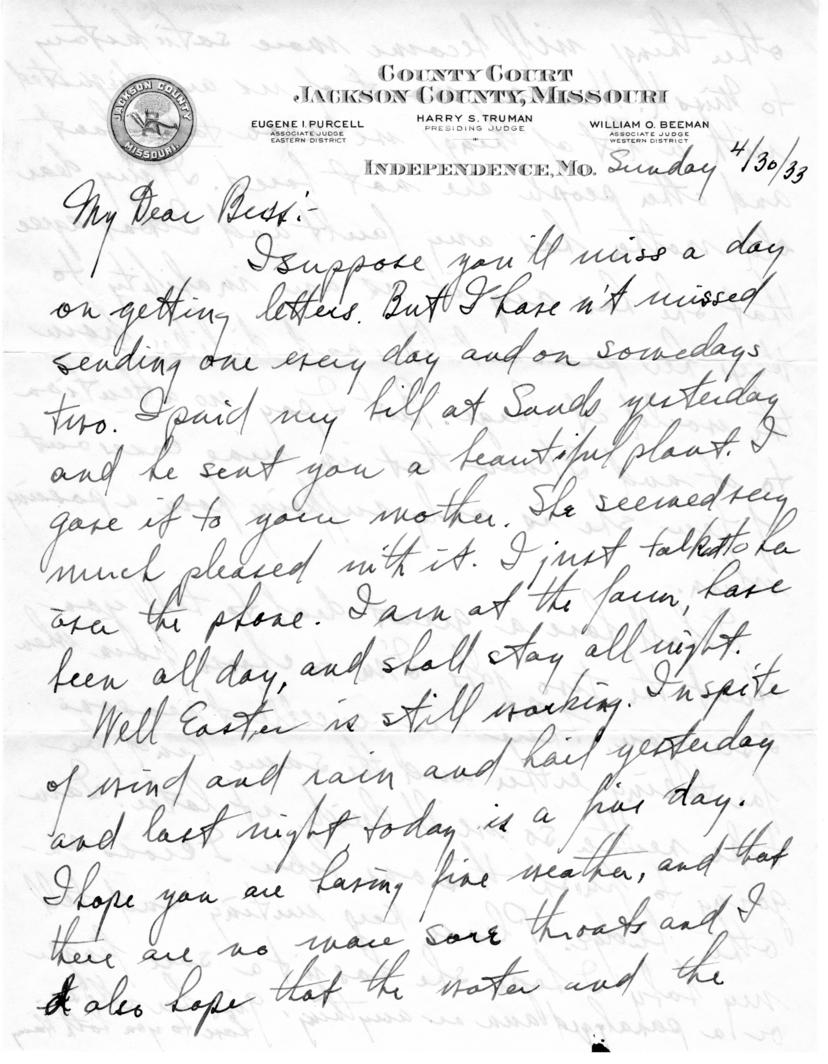 COUNTY COURT
JACKSON COUNTY, MISSOURI
JACKSON COUNTY
MISSOURI
EUGENE I. PURCELL
ASSOCIATE JUDGE
EASTERN DISTRICT
HARRY S. TRUMAN
PRESIDING JUDGE
WILLIAM O. BEEMAN
ASSOCIATE JUDGE
WESTERN DISTRICT
INDEPENDENCE, MO. Sunday 4/30/33
My Dear Bess:-
I suppose you'll miss a day
on getting letters. But I have n't missed
sending one every day and on somedays
two. I paid my bill at Sands yesterday
and he sent you a beautiful plant. I
gave it to your mother. She seemed very
much pleased with it. I just talked to her
over the phone. I am at the farm, have
been all day, and shall stay all night.
Well Easter is still working. In spite
of wind and rain and hail yesterday
and last night, today is a fine day.
I hope you are having fine weather, and that
there are no more sore throats and I
also hope that the water and the